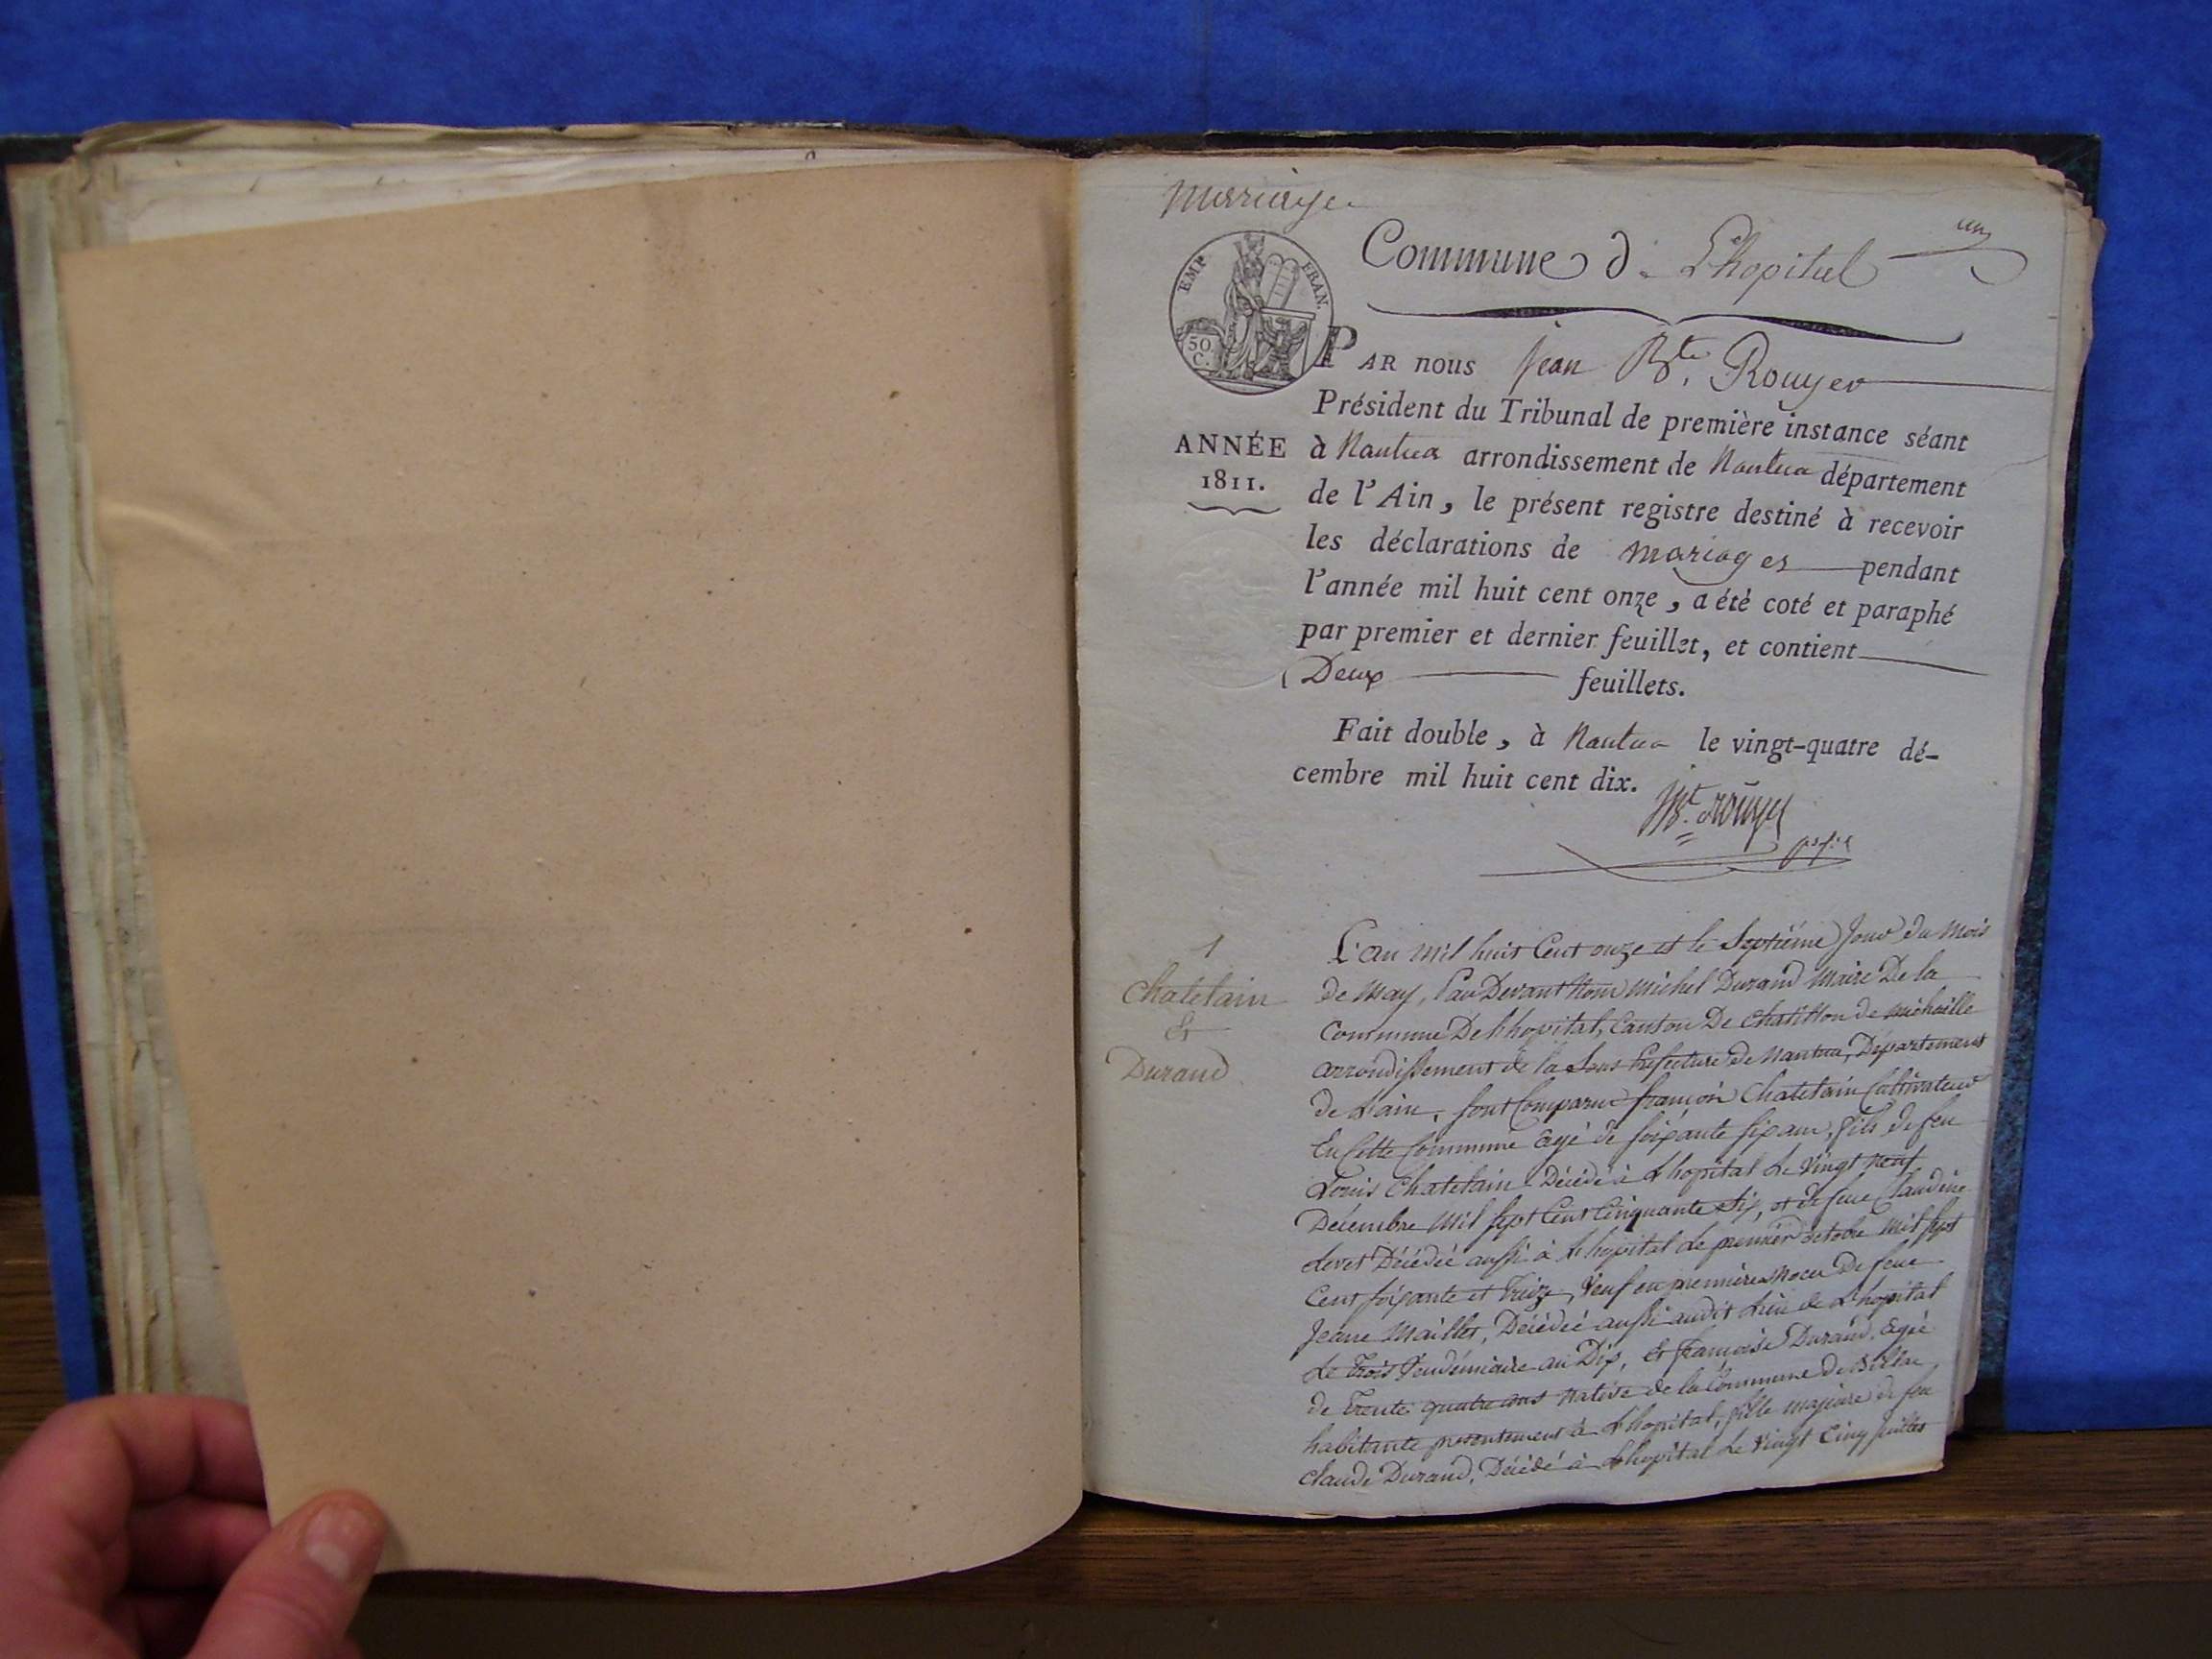 Mariage
un
Commune de Lhopital
EMP. FRAN.
50 C.
PAR nous Jean Bte. Rouyer
Président du Tribunal de première instance séant
ANNÉE
1811.
à Nantua arrondissement de Nantua département
de l'Ain, le présent registre destiné à recevoir
les déclarations de mariages pendant
l'année mil huit cent onze, a été coté et paraphé
par premier et dernier feuillet, et contient
Deux feuillets.
Fait double, à Nantua le vingt-quatre dé-
cembre mil huit cent dix.
JBt. rouyer
1
Chatelain
&
Durand
L'an mil huit Cent onze et le Septième Jour du Mois
de May, Par Devant Nous Michel Durand Maire De la
Commune De Lhopital, Canton De Chatillon de michaille
arrondissement de la Sous Prefecture de Nantua, Département
de Lain, sont Comparus françois Chatelain Cultivateur
En Cette Commune âgé de soixante six ans, fils de feu
Louis Chatelain Décédé à Lhopital Le Vingt neuf
Décembre Mil sept Cent Cinquante Six, et de feue Claudine
Décédée aussi à Lhopital Le premier octobre Mil sept
Cent soixante et treize, Veuf en premières Noces De feue
Jeane Maillet, Décédée aussi audit Lieu de Lhopital
Le trois Vendémiaire an Dix, Et françoise Durand, âgée
de Trente quatre ans native de la Commune de Billia
habitante présentement à Lhopital, fille majeure de feu
Claude Durand, Décédé à Lhopital Le Vingt Cinq Juillet